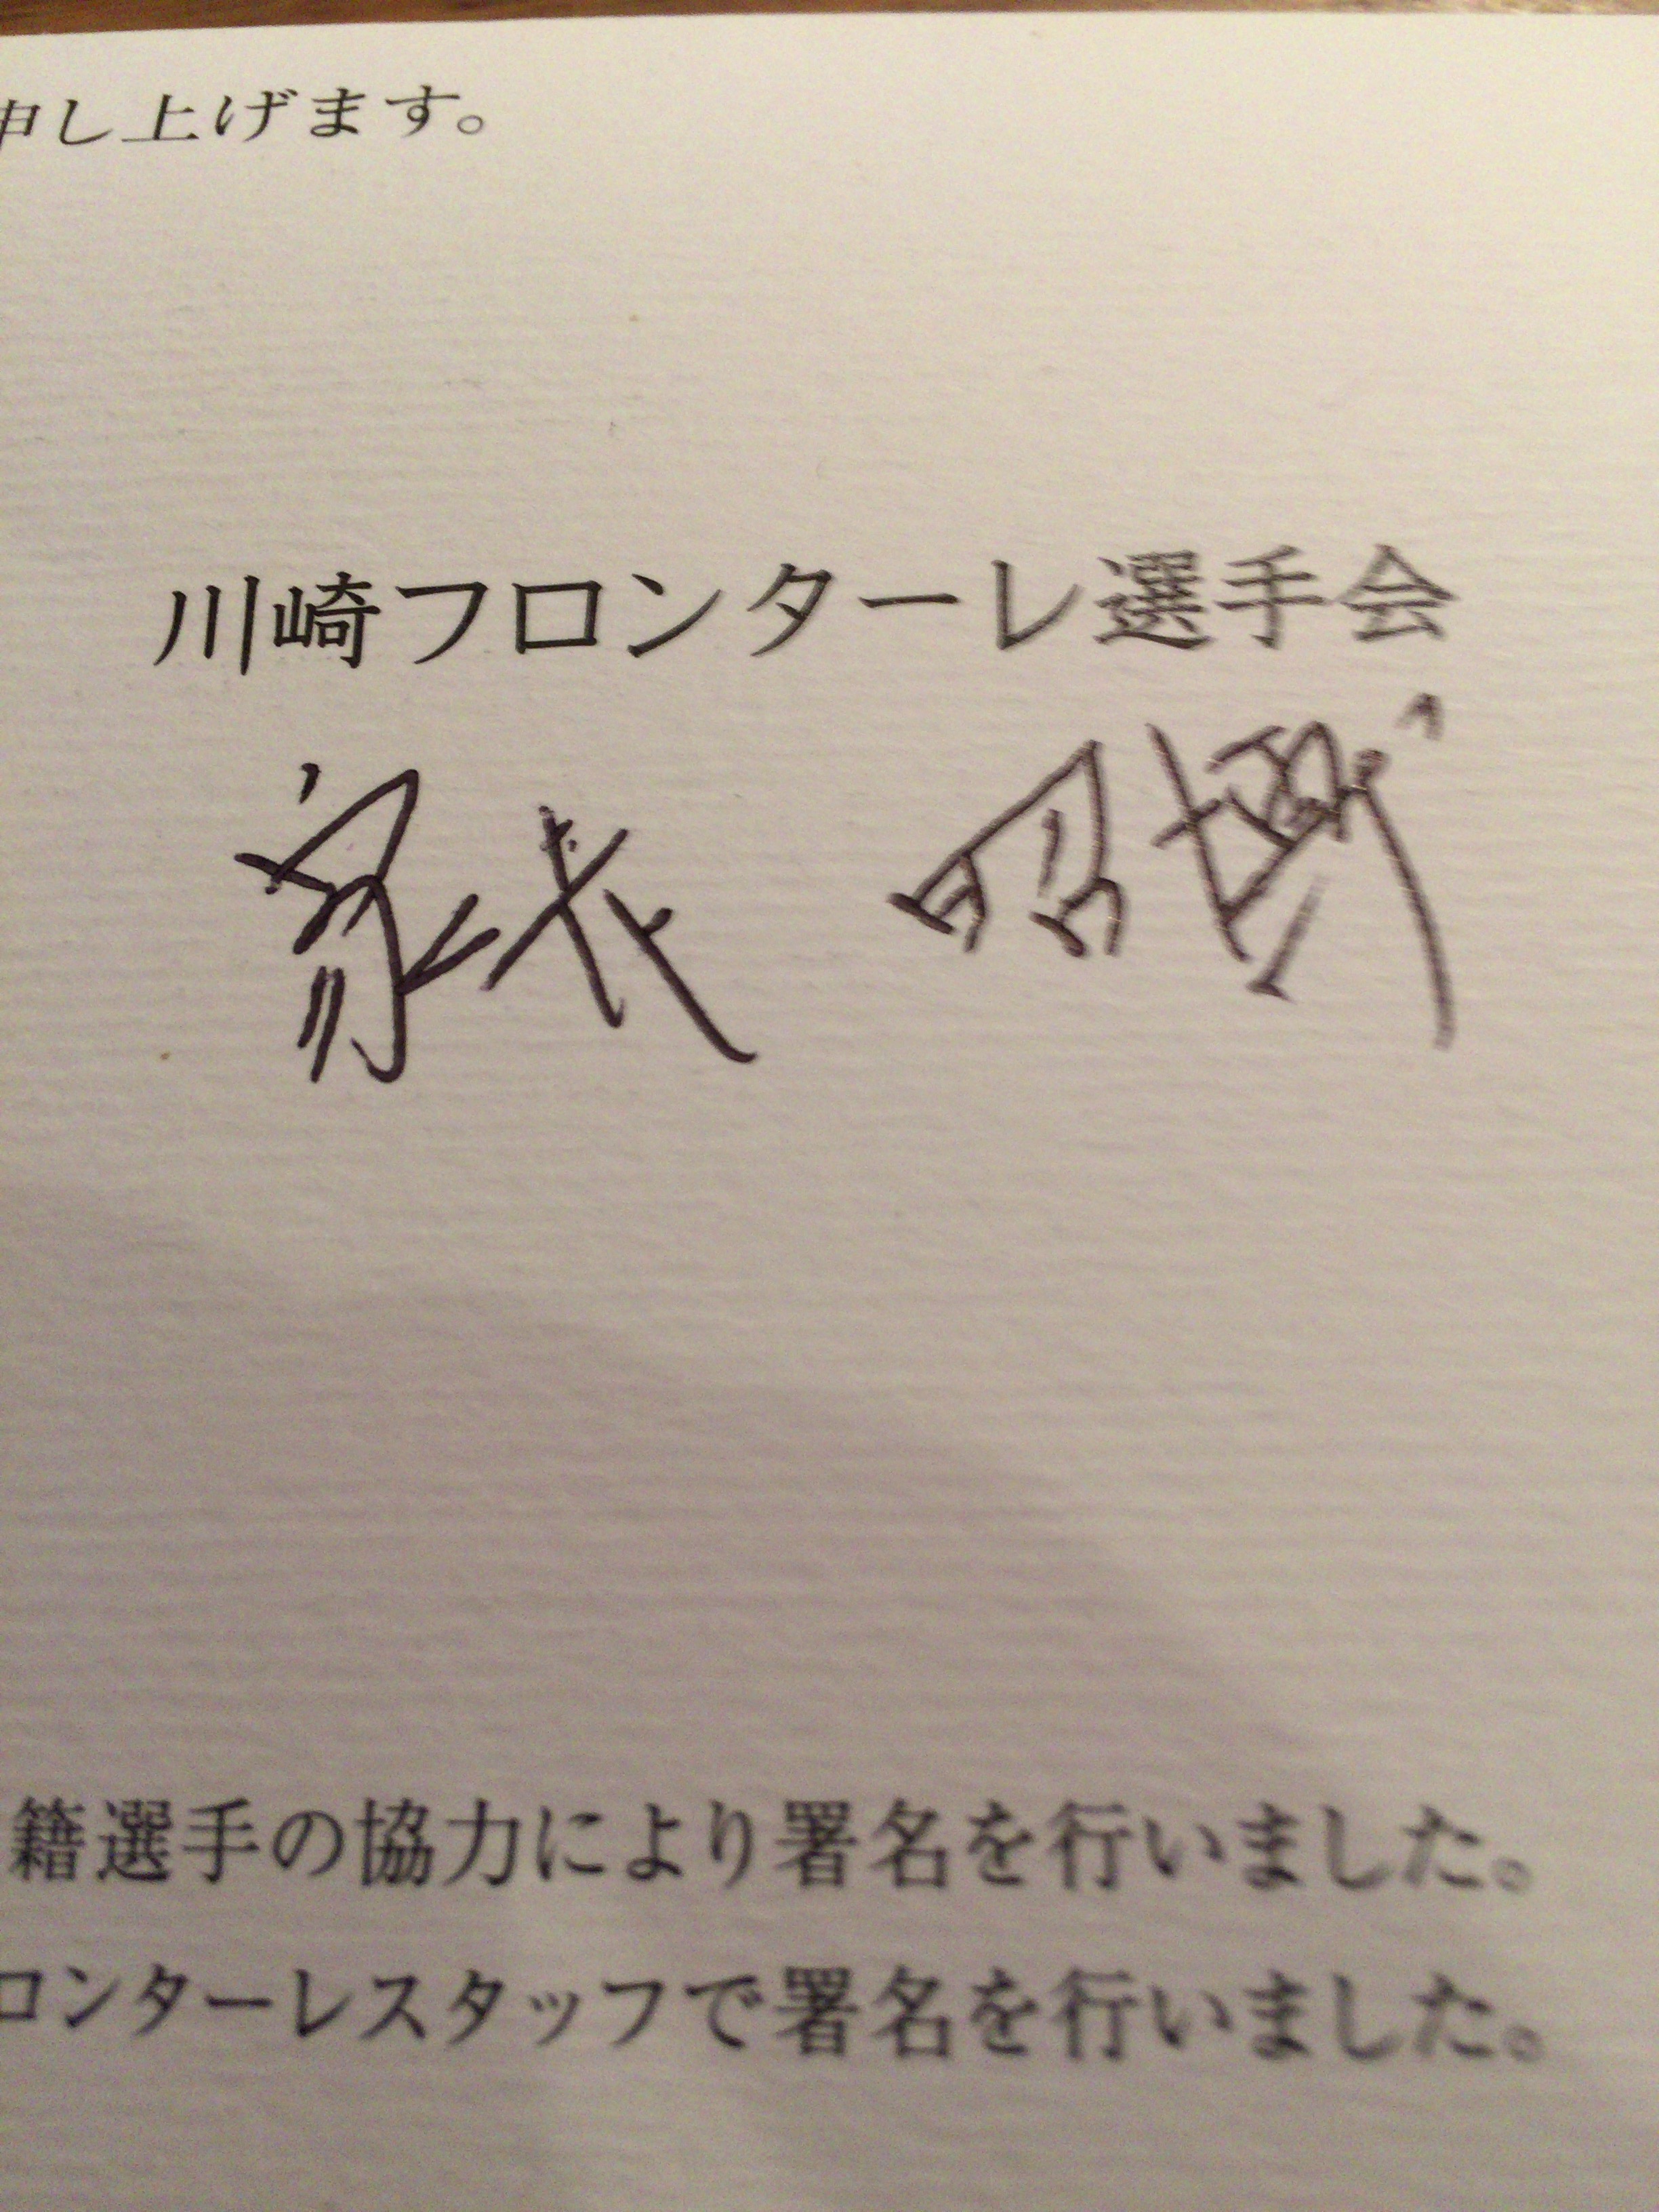 申し上げます。
川崎フロンターレ選手会
家長 昭博
籍選手の協力により署名を行いました。
ロンターレスタッフで署名を行いました。